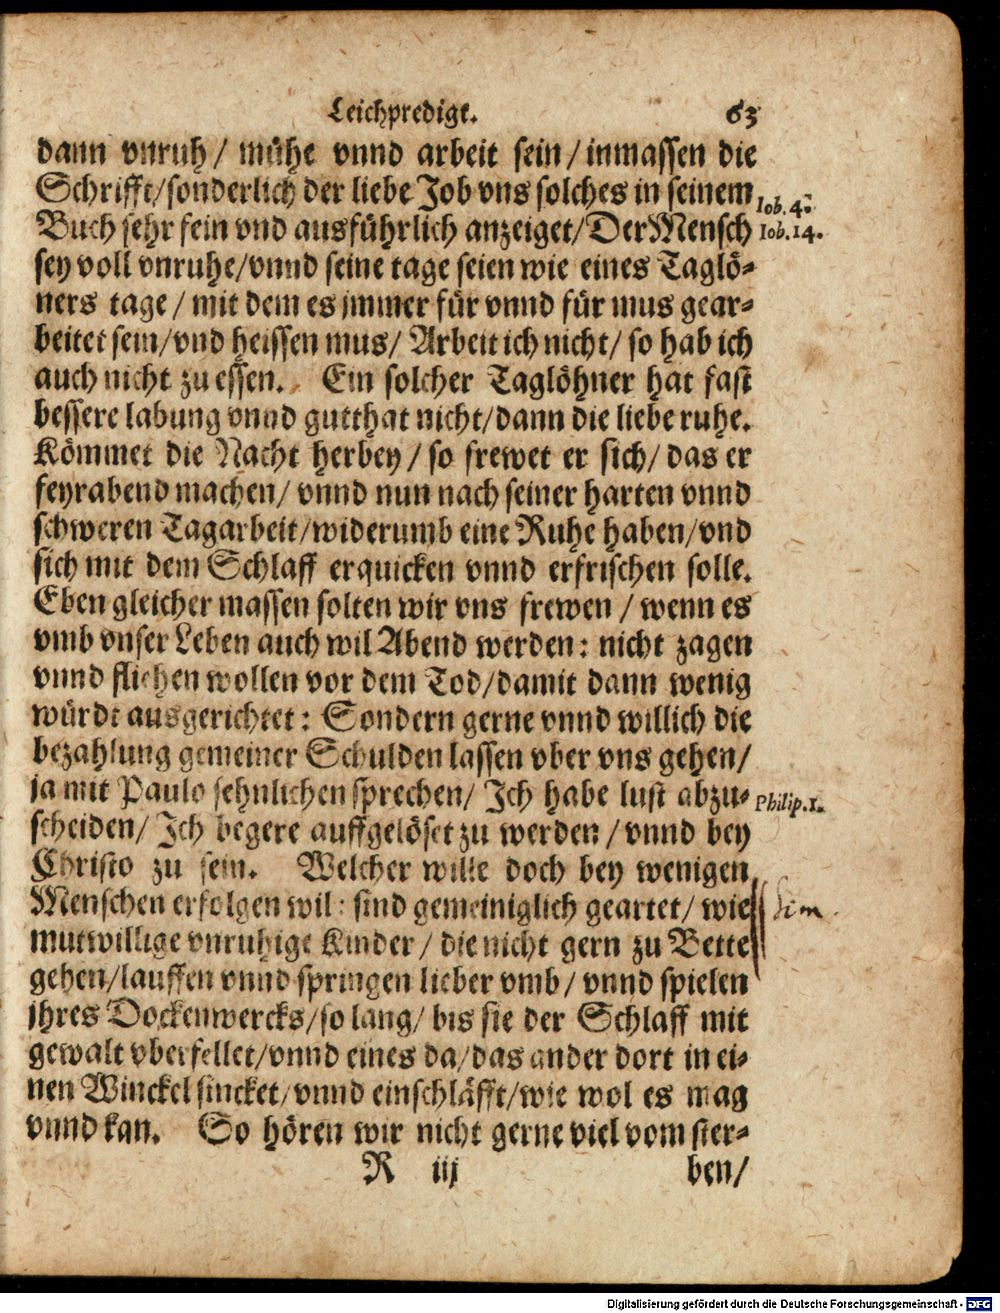 Leichpredigt. 63
dann vnruh/ mühe vnnd arbeit sein/ inmassen die
Schrifft/sonderlich der liebe Job vns solches in seinem Iob. 4.
Buch sehr fein vnd ausführlich anzeiget/ Der Mensch Iob. 14.
sey voll vnruhe/vnnd seine tage seien wie eines Taglö-
ners tage / mit dem es immer für vnnd für mus gear-
beitet sein/vnd heissen mus/ Arbeit ich nicht/ so hab ich
auch nicht zu essen. Ein solcher Taglöhner hat fast
bessere labung vnnd gutthat nicht/dann die liebe ruhe.
Kömmet die Nacht herbey / so frewet er sich/ das er
feyrabend machen/ vnnd nun nach seiner harten vnnd
schweren Tagarbeit/widerumb eine Ruhe haben/vnd
sich mit dem Schlaff erquicken vnnd erfrischen solle.
Eben gleicher massen solten wir vns frewen / wenn es
vmb vnser Leben auch wil Abend werden: nicht zagen
vnnd fliehen wollen vor dem Tod/damit dann wenig
würdt ausgerichtet: Sondern gerne vnnd willich die
bezahlung gemeiner Schulden lassen vber vns gehen/
ja mit Paulo sehnlichen sprechen/ Ich habe lust abzu- Philip. 1.
scheiden/ Ich begere auffgelöset zu werden / vnnd bey
Christo zu sein. Welcher wille doch bey wenigen
Menschen erfolgen wil: sind gemeiniglich geartet/ wie Sim.
mutwillige vnruhige Kinder / die nicht gern zu Bette
gehen/lauffen vnnd springen lieber vmb / vnnd spielen
ihres Dockenwercks/so lang/ bis sie der Schlaff mit
gewalt vberfellet/vnnd eines da/das ander dort in ei-
nen Winckel sincket/vnnd einschläfft/wie wol es mag
vnnd kan. So hören wir nicht gerne viel vom ster-
R iij ben/
Digitalisierung gefördert durch die Deutsche Forschungsgemeinschaft - DFG